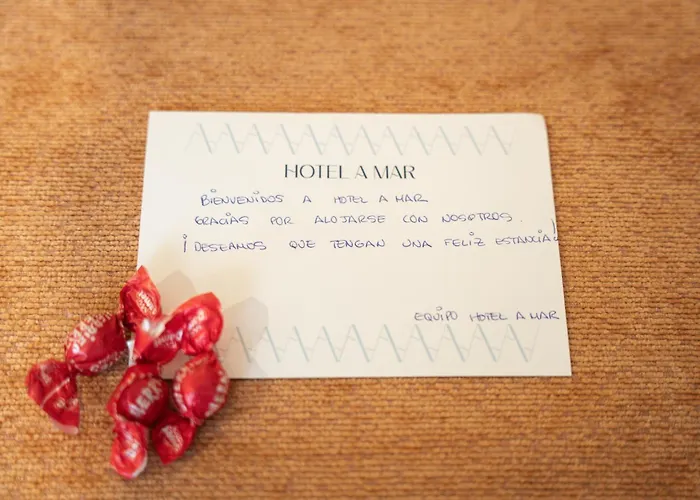 HOTEL A MAR
BIENVENIDOS A HOTEL A MAR
GRACIAS POR ALOJARSE CON NOSOTROS.
¡DESEAMOS QUE TENGAN UNA FELIZ ESTANCIA!
EQUIPO HOTEL A MAR